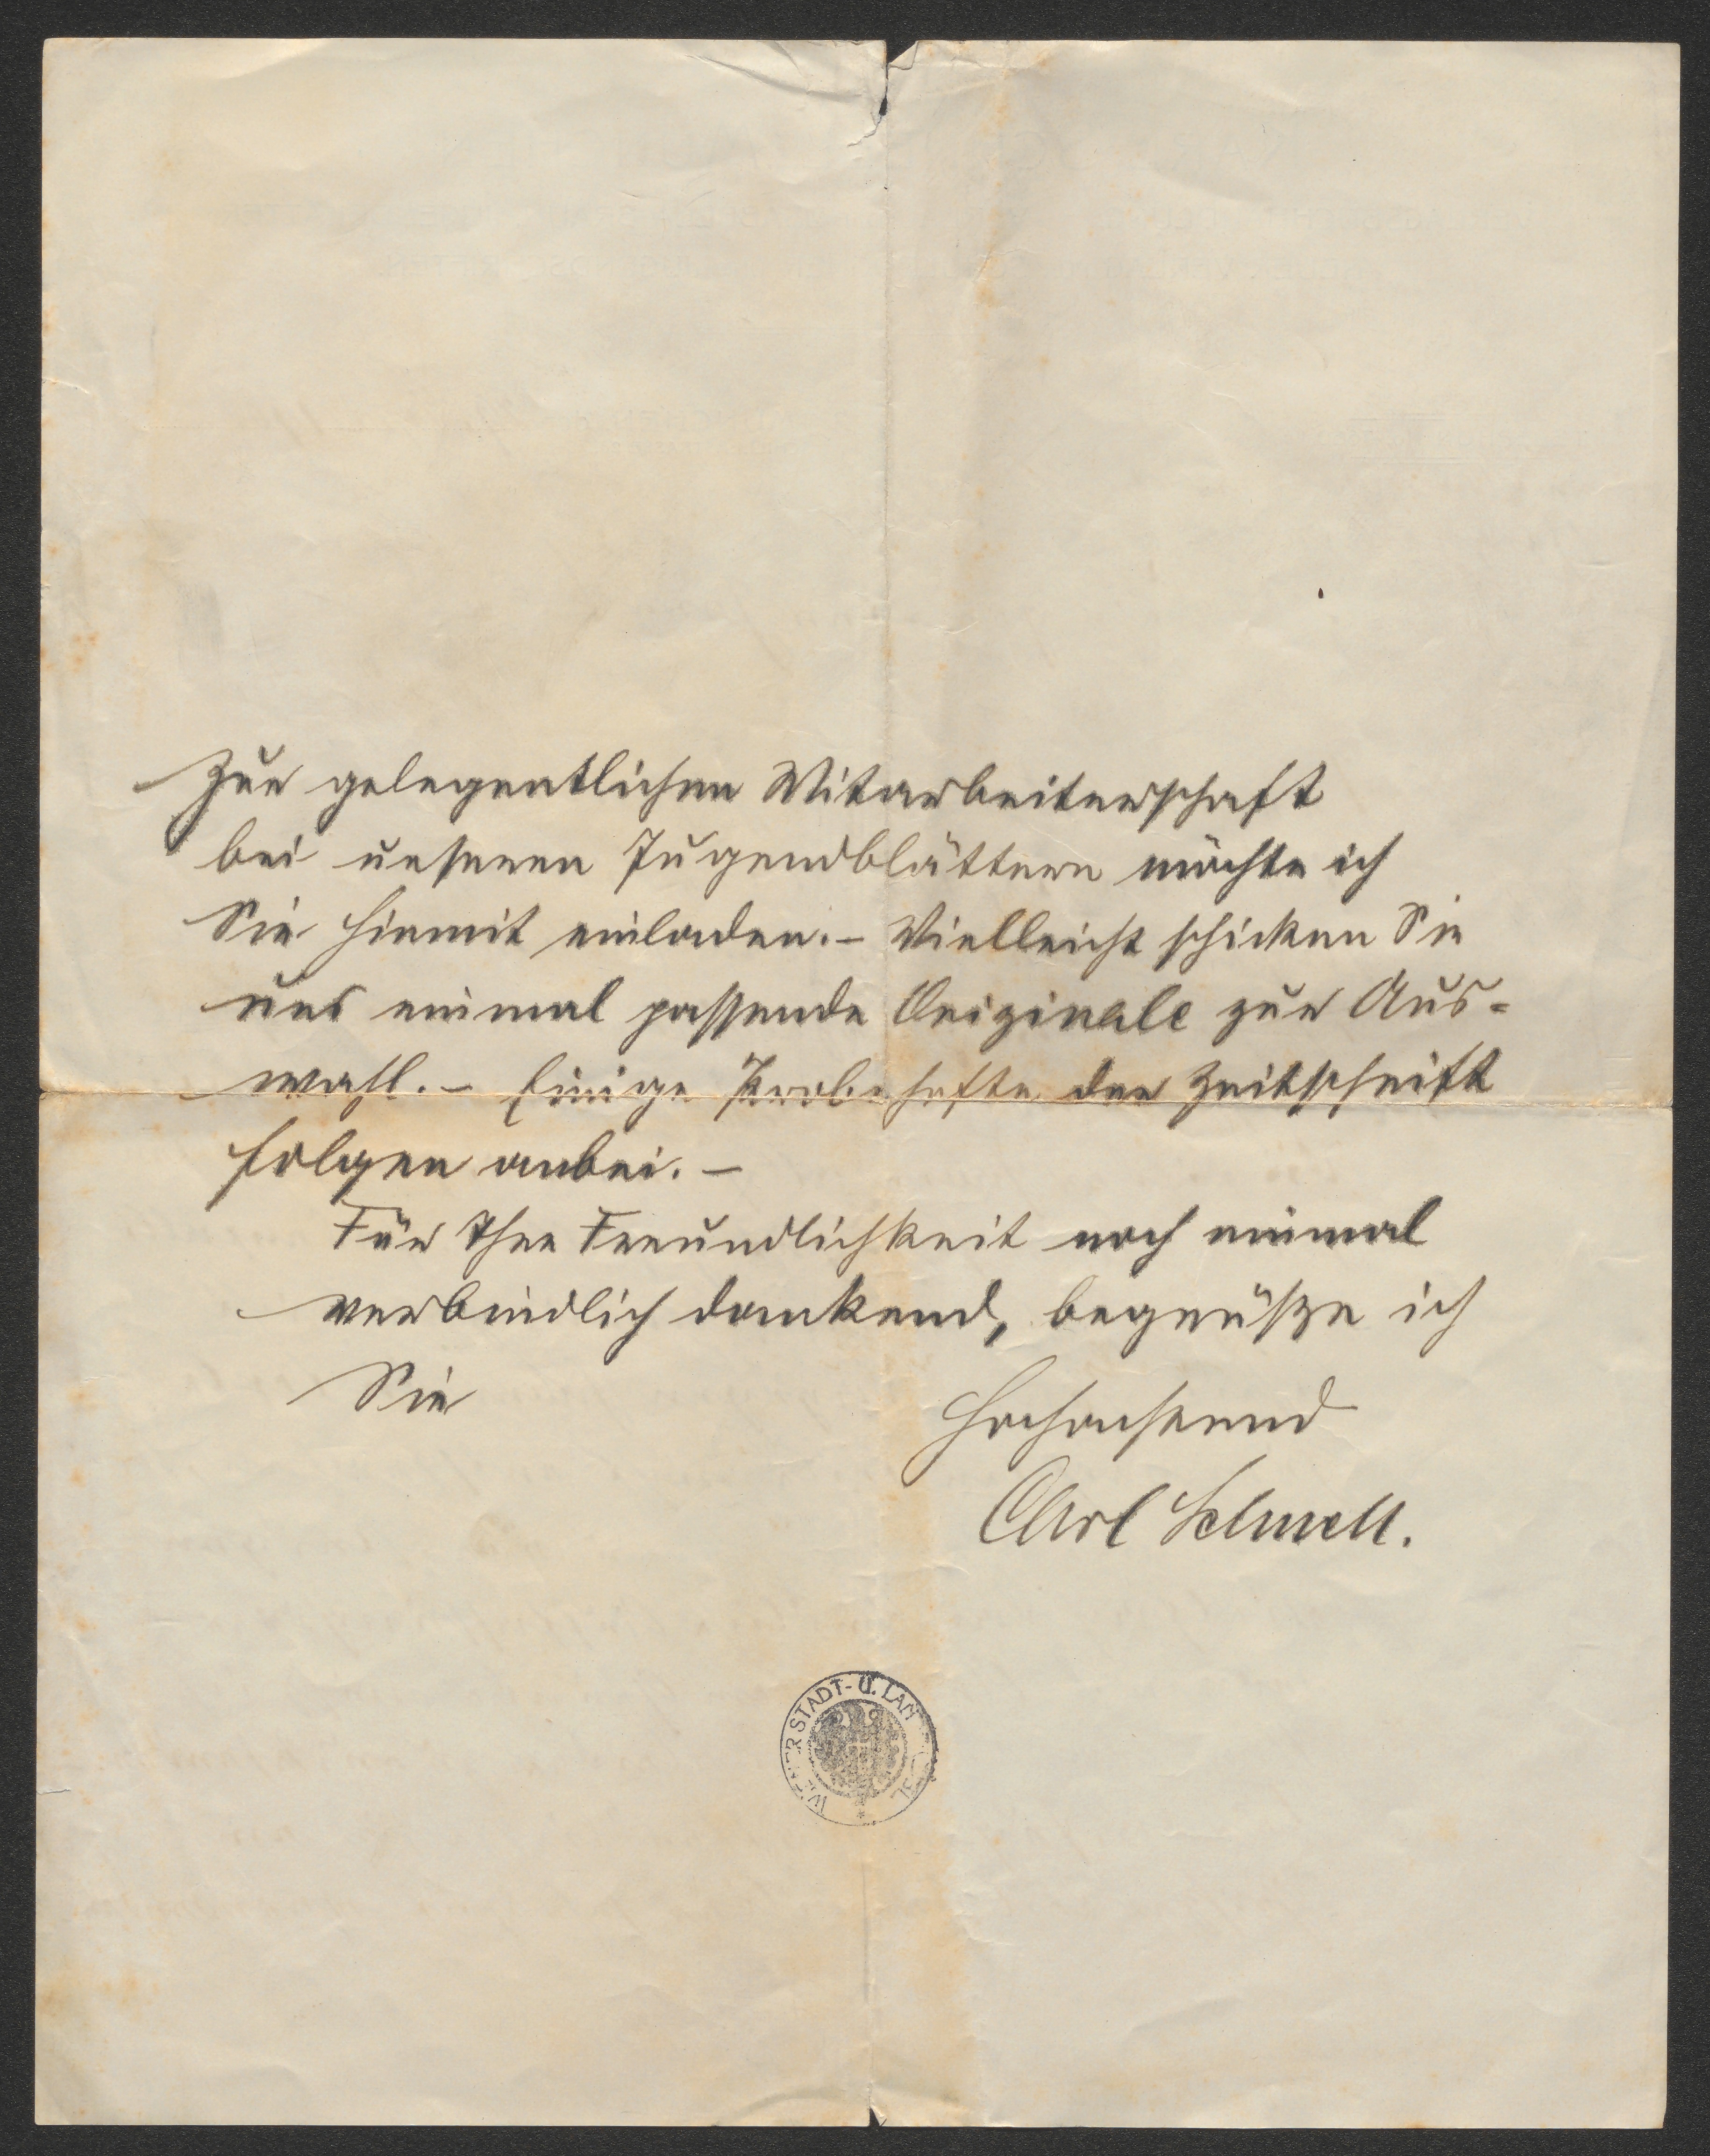 Zur gelegentlichen Mitarbeiterschaft
bei unseren Jugendblättern möchte ich
Sie hiermit einladen. – Vielleicht schicken Sie
uns einmal passende Originale zur Aus=
wahl. – Einige Probehefte der Zeitschrift
folgen anbei. –
Für Ihre Freundlichkeit noch einmal
verbindlich dankend, begrüße ich
Sie
Hochachtend
Carl
WIENER STADT- U. LAN